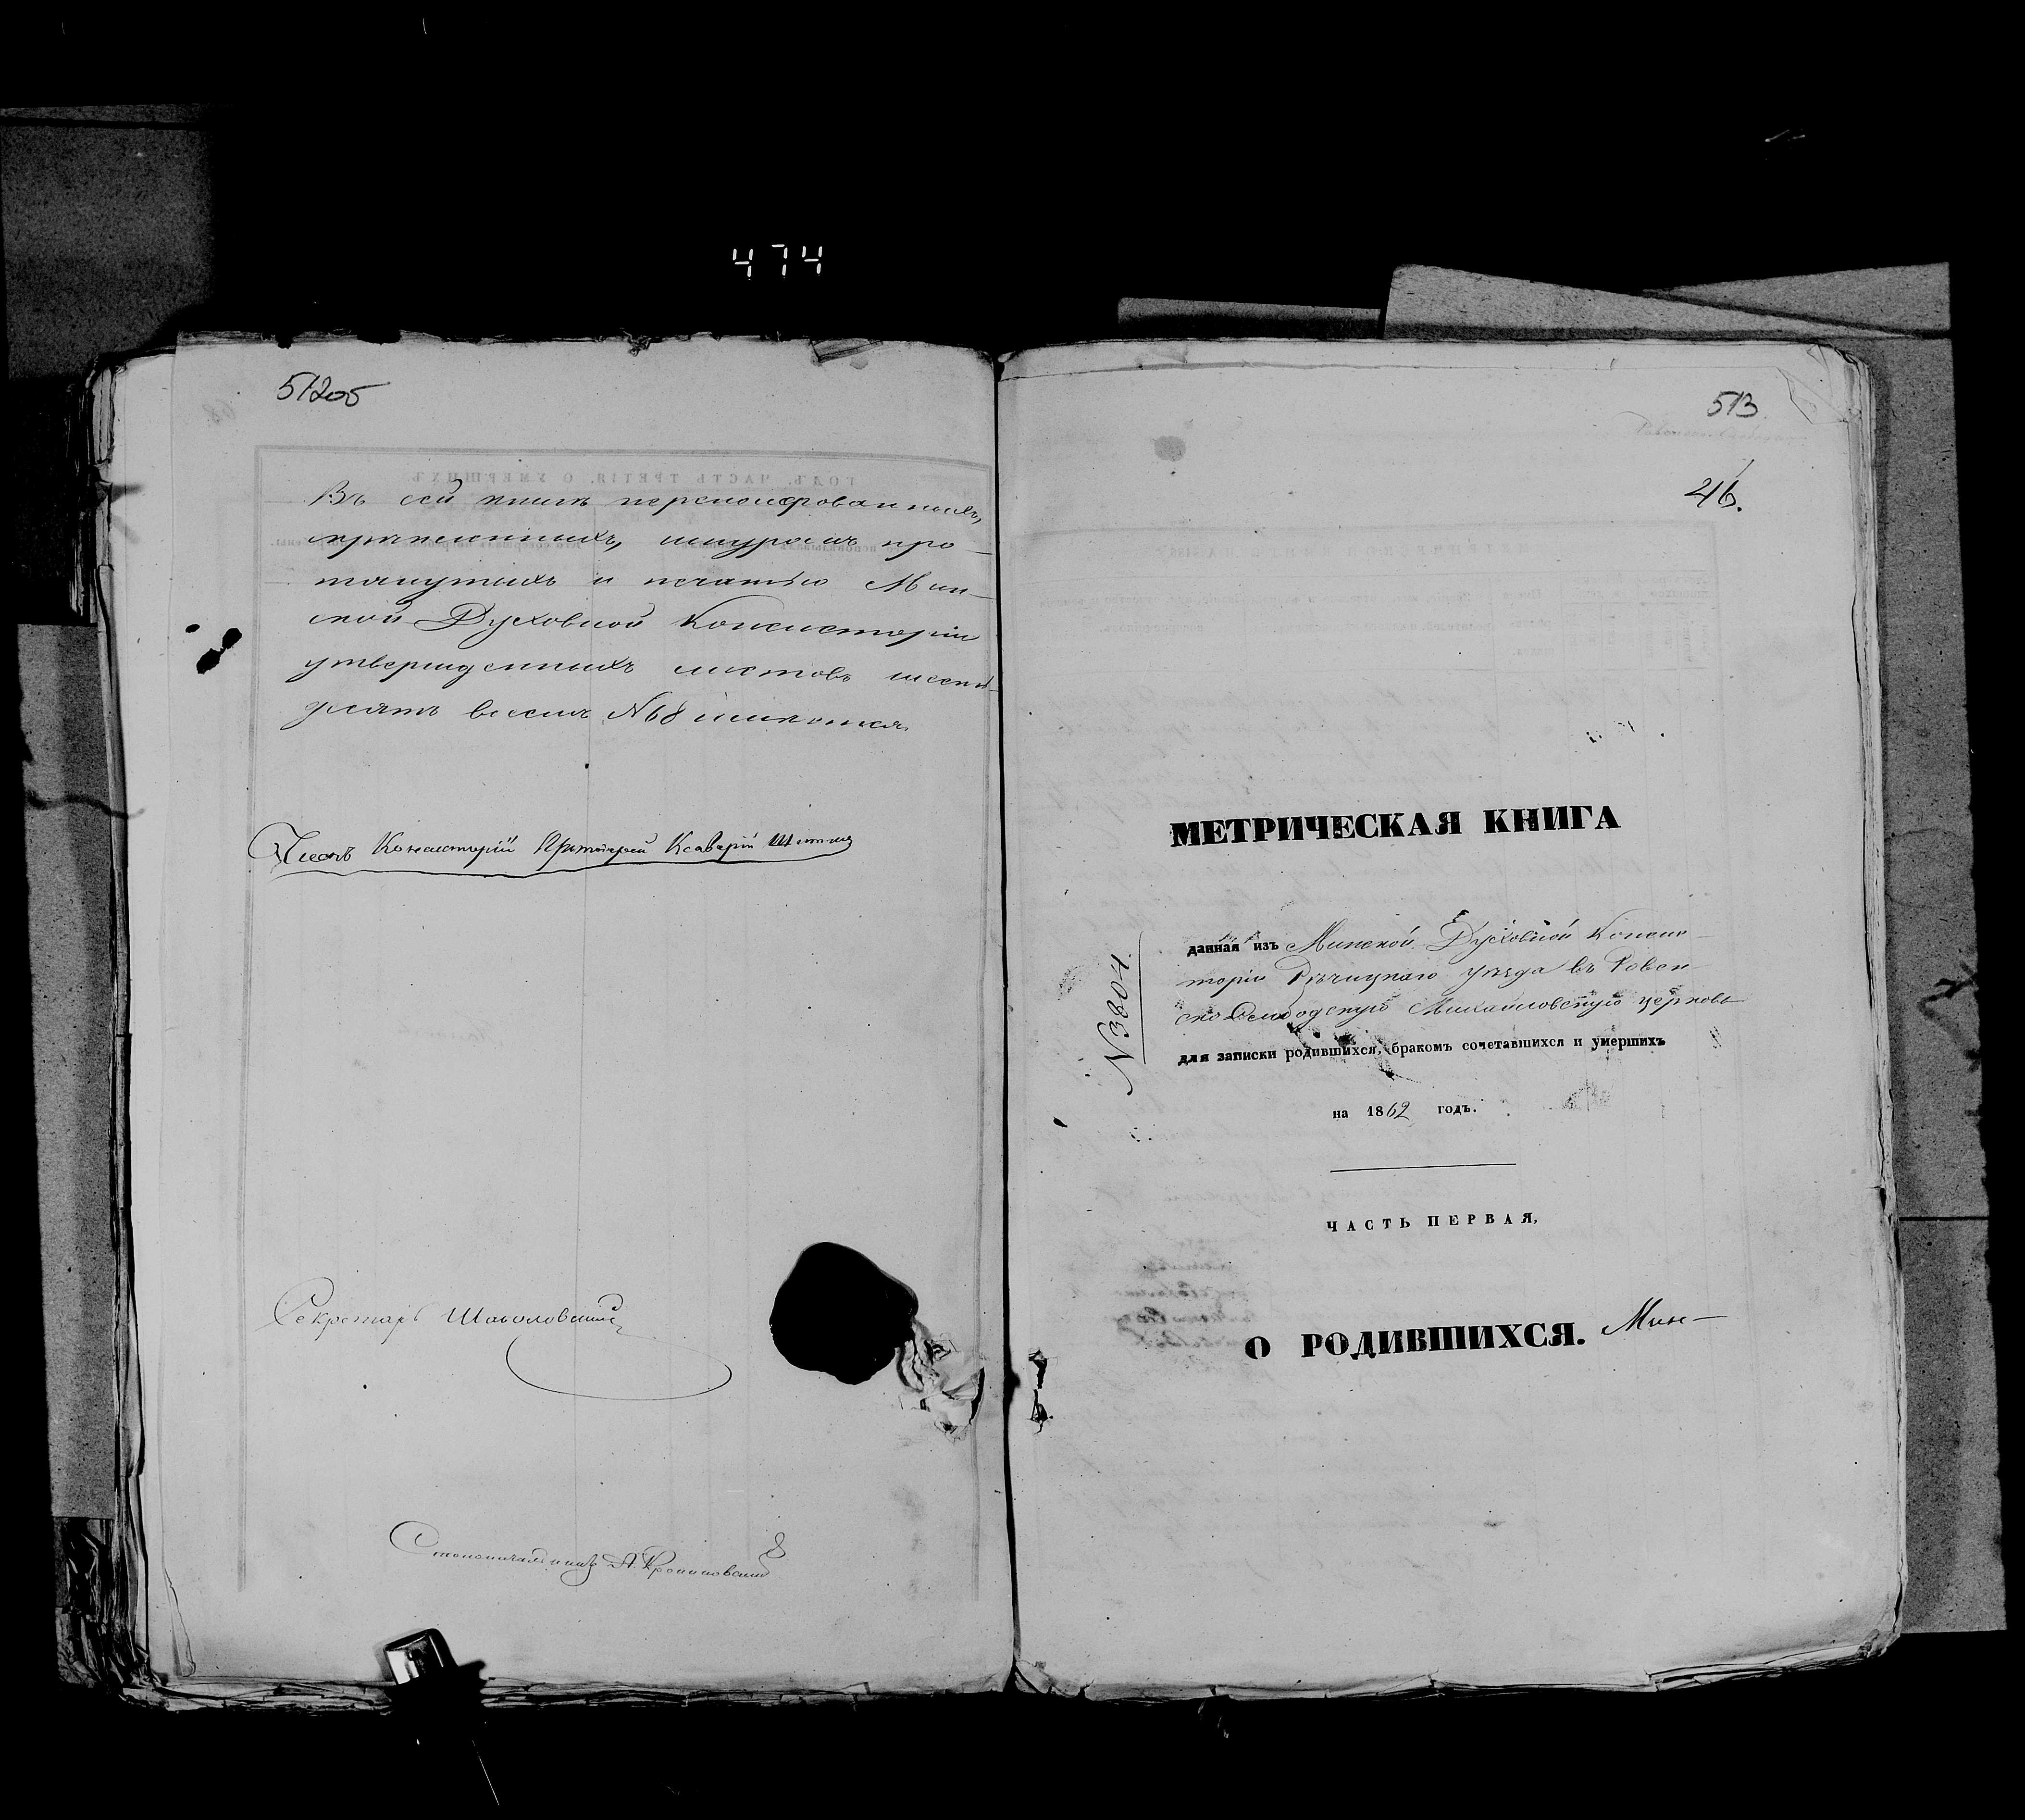 474
512об
Въ сей книгѣ переномерованныхъ,
скрѣпленныхъ, шнуромъ про-
тянутыхъ и печатью Мин-
ской Духовной Консисторіи
утвержденныхъ листовъ шесть-
десятъ восемь №68 имѣется.
Членъ Консисторіи Протоіерей Ксаверій
Секретарь
Столоначальникъ А.
513
46.
МЕТРИЧЕСКАЯ КНИГА
№3804.
данная изъ Минской Духовной Консис-
торіи Рѣчицкаго уѣзда въ Ровен-
скослободскую Михайловскую церковь
для записки родившихся, бракомъ сочетавшихся и умершихъ
на 1862 годъ.
ЧАСТЬ ПЕРВАЯ,
О РОДИВШИХСЯ. Мин-